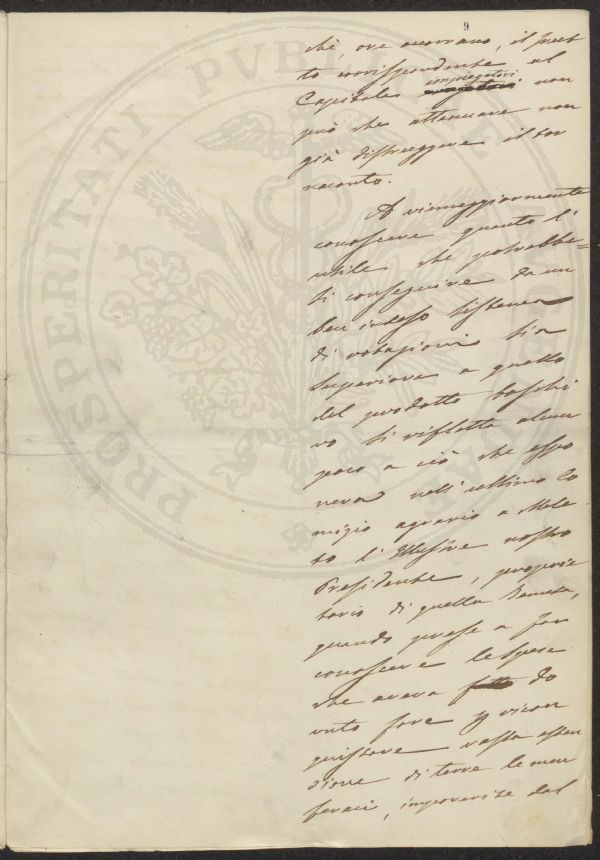 9
chè, ove occorrano, il frut
to corrispondente al
Capitale impiegatovi non
può che attenuare non
già distruggere il tor
naconto.
A viemeggiormente
conoscere quanto l'
utile che potrebbe=
si conseguire da un
ben inteso sistema
di rotazioni sia
superiore a quello
del prodotto boschi
vo si rifletta alcun
poco a ciò che espo
neva nell'ultimo Co
mizio agrario a Mele
to l'Illustre nostro
Presidente, proprie
tario di quella Tenuta,
quando prese a far
conoscere le spese
che aveva do
vuto fare p ricon
quistare vasta esten
sione di terre le men
feraci, impoverite dal
PROSPERITATI PUBLICAE AUGENDAE